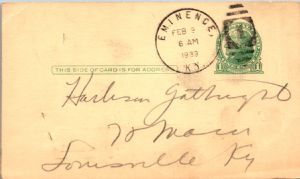 EMINENCE,
FEB 9
6 AM
1933
KY.
THIS SIDE OF CARD IS FOR ADDRESS
1 1
Harrison Gathright
70 Main
Louisville Ky